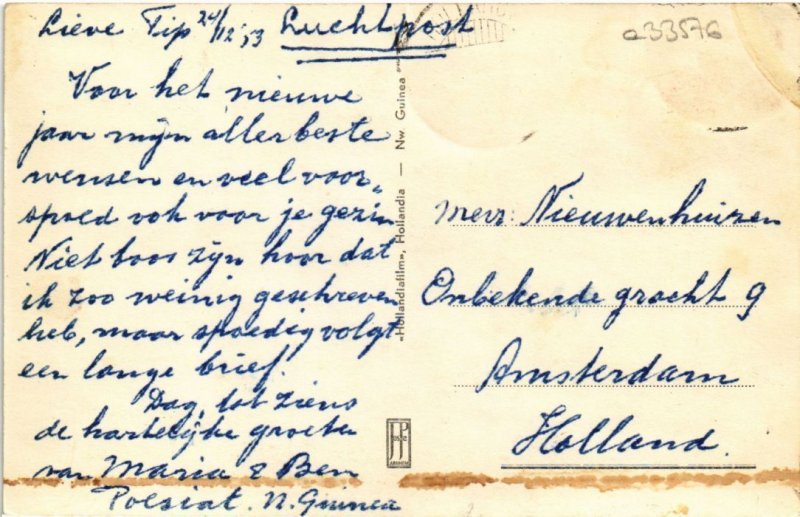 Lieve Tip 20/12 '53 Luchtpost
Voor het nieuwe
jaar mijn allerbeste
wensen en veel voor„
spoed ook voor je gezin
Niet boos zijn hoor dat
ik zoo weinig geschreven
heb, maar spoedig volgt
een lange brief.
Dag, tot ziens
de hartelijke groeten
van Maria & Ben
Poesiat. N. Guinea
«Hollandiafilm», Hollandia — Nw Guinea
JP
033576
Mevr: Nieuwenhuizen
Onbekende gracht 9
Amsterdam
Holland.